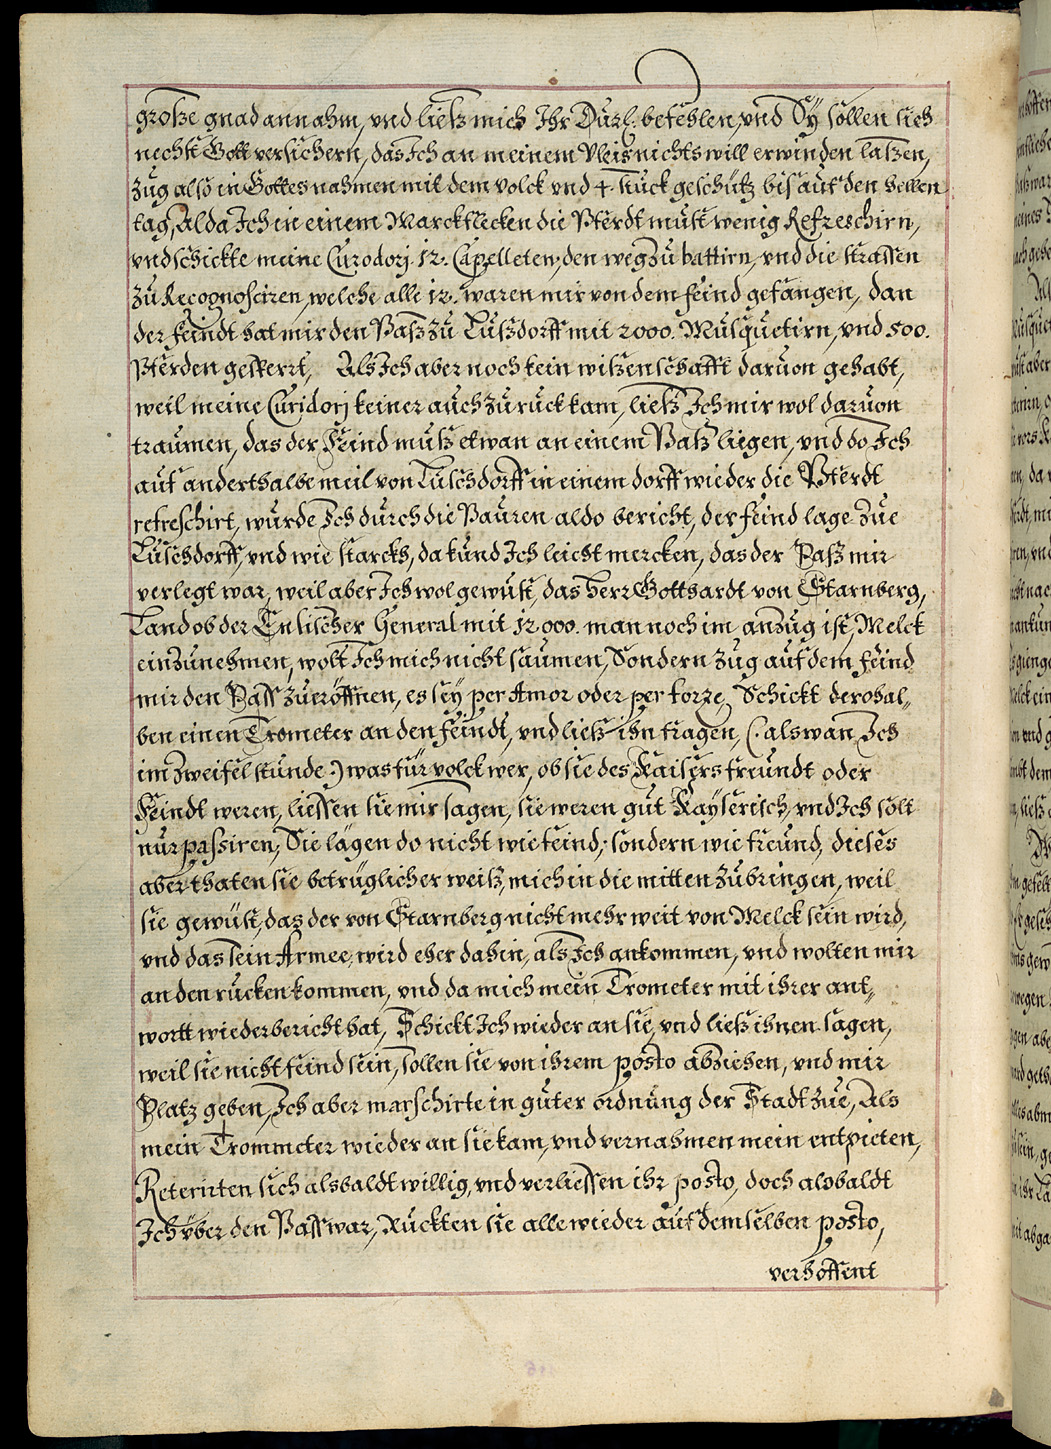 große gnad annahm, vnd ließ mich Ihr Dürl. befehlen, vnd Sÿ sollen sich
nechst Gott versichern, das Ich an meinem Vleis nichts will erwinden laßen,
Zug also in Gottes nahmen mit dem volck vnd 4. stuck geschütz bis auf den hellen
tag, Alda Ich in einem Marckflecken die Pferdt must wenig Refreschirn,
vnd schickte meine Curodorj. 12. Capelleten, den weg zu battirn, vnd die strassen
zu Recognosciren, welche alle 12. waren mir von dem feind gefangen, dan
der feindt hat mir den Paß zu Lußdorff mit 2000. Musquetirn, vnd 500.
Pferden gesperrt, Als Ich aber noch kein wißenschafft daruon gehabt,
weil meine Curidorj keiner auch zuruck kam, ließ Ich mir wol daruon
traumen, das der Feind muß etwan an einem Paß liegen, vnd do Ich
auf anderthalbe meil von Luschdorff in einem dorff wieder die Pferdt
refreschirt, wurde Ich durch die Bauren aldo bericht, der feind lage zue
Luschdorff, vnd wie starckh, da kund Ich leicht mercken, das der Paß mir
verlegt war, weil aber Ich wol gewust, das herr Gotthardt von Starnberg,
Land ob der Enlischer General mit 12000. man noch im anzug ist, Melck
einzunehmen, wolt Ich mich nicht saumen, Sondern zug auf dem feind
mir den Pass zueröffnen, es seÿ per Amor oder per forze, Schickt derohal„
ben einen Trometer an den feindt, vnd ließ ihn fragen, (: als wan Ich
im Zweifel stunde :) was für volck wer, ob sie des Kaisers freundt oder
Feindt weren, liessen sie mir sagen, sie weren gut Kayserisch, vnd Ich solt
nur passiren, Sie lägen do nicht wie feind, sondern wie freund, dieses
aber thaten sie betrüglicher weiß, mich in die mitten zubringen, weil
sie gewust, das der von Starnberg nicht mehr weit von Melck sein wird,
vnd das sein Armee, wird eher dahin, als Ich ankommen, vnd wolten mir
an den rucken kommen, vnd da mich mein Trometer mit ihrer ant„
wortt wiederbericht hat, Schickt Ich wieder an sie, vnd ließ ihnen sagen,
weil sie nicht feind sein, sollen sie von ihrem posto abziehen, vnd mir
Platz geben, Ich aber marschirte in guter ordnung der Stadt zue, Als
mein Trommeter wieder an sie kam, vnd vernahmen mein entpieten,
Reterirten sich alsbaldt willig, vnd verliessen ihr posto, doch alsbaldt
Ich über den Pass war, Ruckten sie alle wieder auf demselben posto,
verhoffent